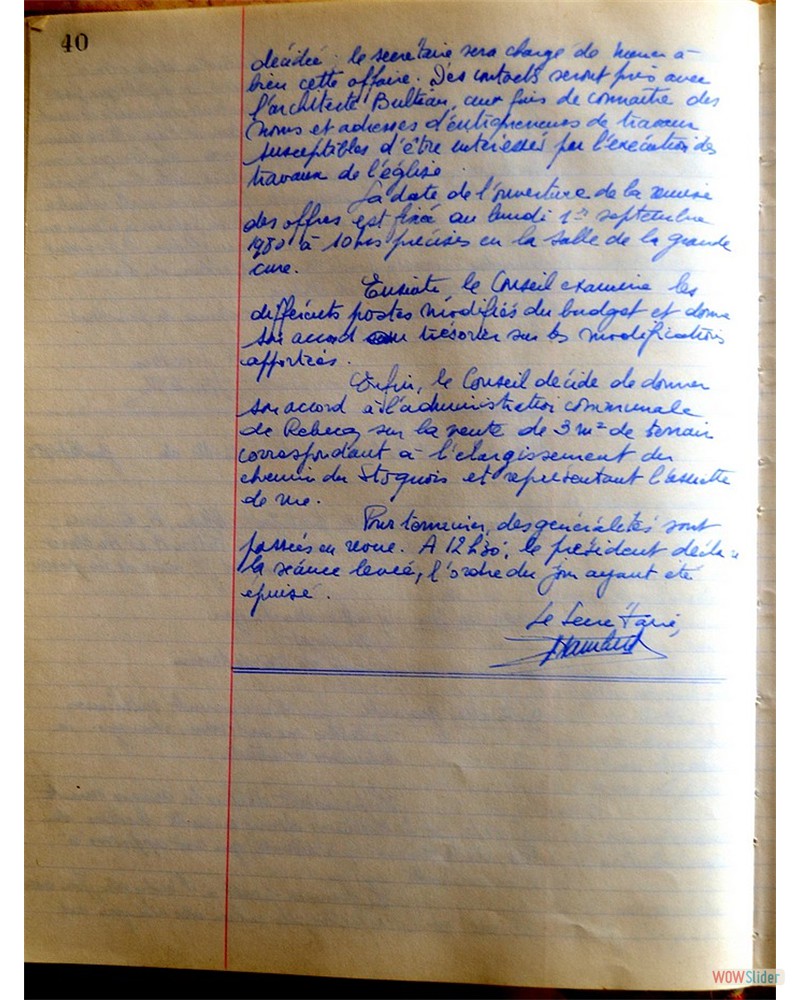 40
décidée ; le secrétaire sera chargé de mener à
bien cette affaire. Des contacts seront pris avec
l'architecte Bulteau, aux fins de connaître des
noms et adresses d'entrepreneurs de travaux
susceptibles d'être intéressés par l'exécution des
travaux de l'église.
La date de l'ouverture de la remise
des offres est fixée au lundi 1er septembre
1980 à 10 hrs précises en la salle de la grande
cure.
Ensuite, le Conseil examine les
différents postes modifiés du budget et donne
son accord au trésorier sur les modifications
apportées.
Enfin, le Conseil décide de donner
son accord à l'administration communale
de Rebecq sur la vente de 3 m² de terrain
correspondant à l'élargissement du
chemin du Stoquois et représentant l'assiette
de vie.
Pour terminer, des généralités sont
passées en revue. A 12h30, le président déclare
la séance levée, l'ordre du jour ayant été
épuisé.
Le Secrétaire,
WOWSlider